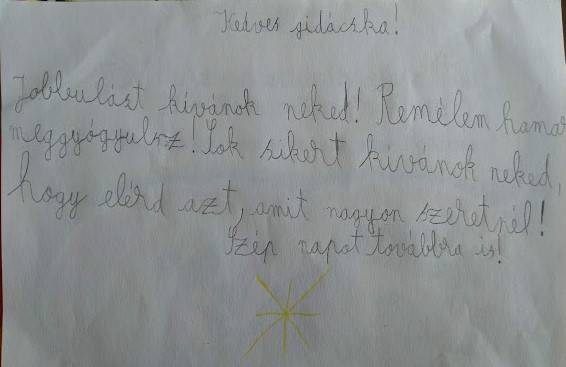 Kedves gidácska!
Jobbulást kívánok neked! Remélem hamar
meggyógyulsz! Sok sikert kívánok neked,
hogy elérd azt, amit nagyon szeretnél!
Szép napot továbbra is!